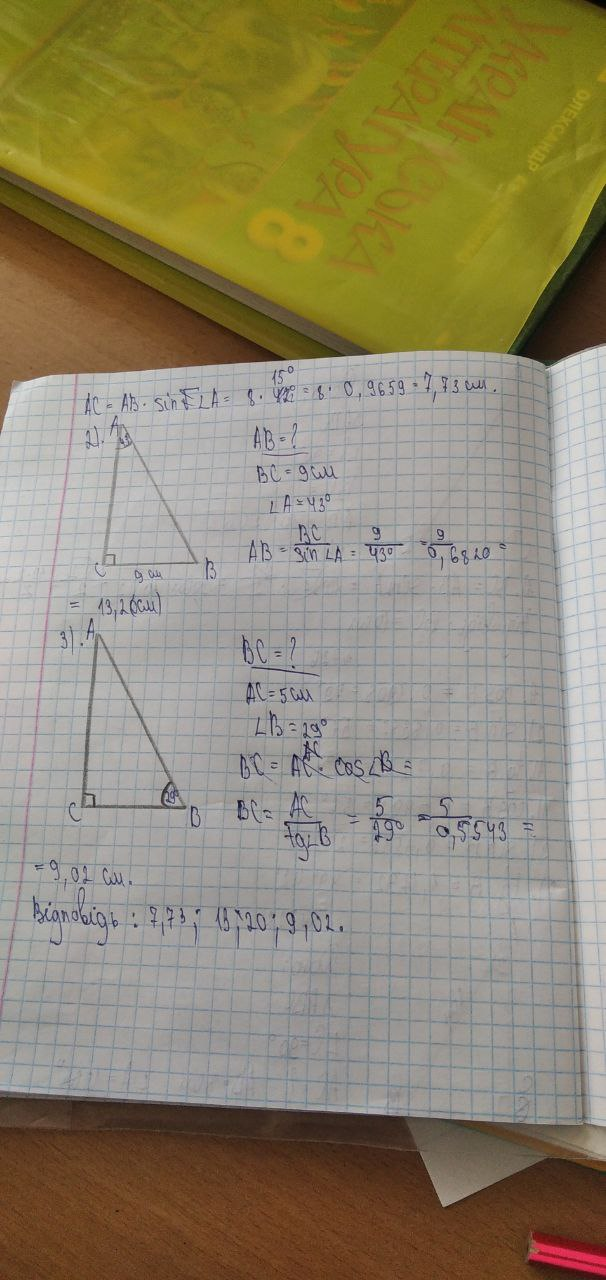 УКРАЇНСЬКА
ЛІТЕРАТУРА
8
ОЛЕКСАНДР
AC = AB · sin ∠A = 8 · 15° = 8 · 0,9659 = 7,73 см.
2).
A
43°
C
9 см
B
AB = ?
BC = 9 см
∠A = 43°
AB = BC / sin ∠A = 9 / 43° = 9 / 0,6820 =
= 13,2 (см)
3).
A
C
29°
B
BC = ?
AC = 5 см
∠B = 29°
BC = AC · cos ∠B =
BC = AC / tg∠B = 5 / 29° = 5 / 0,5543 =
= 9,02 см.
Відповідь : 7,73 ; 13,20 ; 9,02.